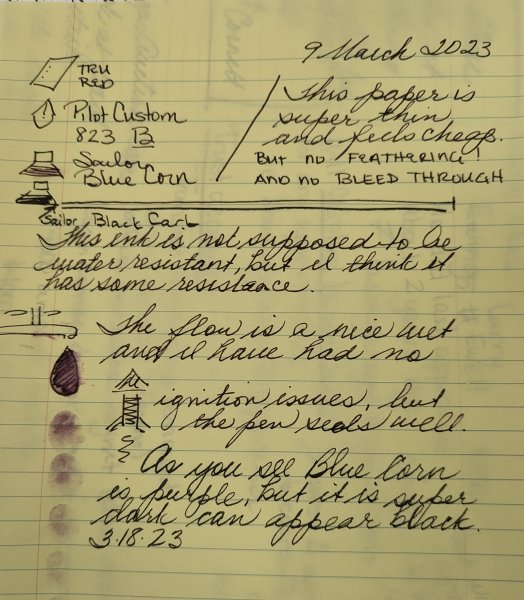 9 March 2023
TRU
RED
Pilot Custom
823 B
Sailor
Blue Corn
This paper is
super thin
and feels cheap.
BUT no FEATHERING!
AND no BLEED THROUGH
Sailor Black Cart
This ink is not supposed to be
water resistant, but I think it
has some resistance.
The flow is a nice wet
and I have had no
ignition issues, but
the pen seals well.
As you see Blue Corn
is purple, but it is super
dark can appear black.
3.18.23